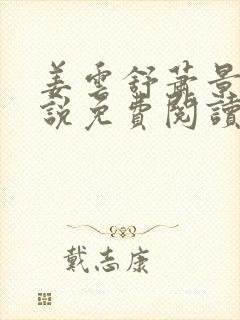 姜雲舒蕭景
說免費閱讀
戴志康